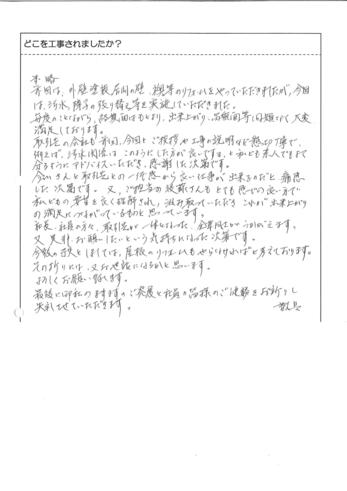 どこを工事されましたか？
前略
前回は、外壁塗装、台所の壁、襖等のリフォームをやっていただきましたが、今回
は、汚水、障子の張り替え等を実施していただきました。
毎度のことながら、技術面はもとより、出来上がり、品質面等も問題なく、大変
満足しております。
取引先の会社も前回、今回とご挨拶や工事の説明など熱心丁寧で、
例えば、汚水関係は、このようにした方が良いですよ、と私ども素人でも十
分なようにアドバイスいただき、感謝した次第です。
さんと取引先との一体感から良い仕事が出来るのだと痛感
した次第です。又、ご担当の さんもとても感じの良い方で
私どもの 要望を良く理解され、汲み取っていただき これが出来上がり
の満足につながっているものと思っています。
社長、社員の方々、取引先が一体となった 企業風土がうかがえます。
又是非お願いしたいという気持ちになった次第です。
今後の予定としましては、屋根のリフォームもやらなければと考えております。
その折りには、又お世話になるかと思います。
よろしくお願い致します。
最後に御社のますますのご発展と社員の皆様のご健勝をお祈りし
失礼させていただきます。
敬具